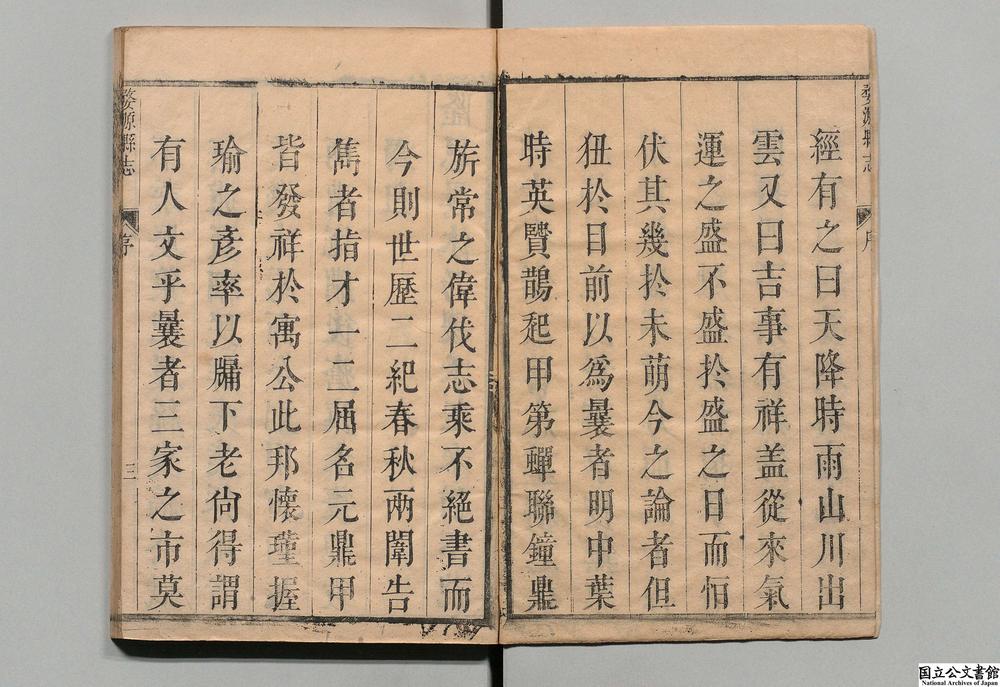 婺源縣志
序
經有之曰天降時雨山川出
雲又曰吉事有祥盖從來氣
運之盛不盛於盛之日而怕
伏其幾於未萌今之論者但
狃於目前以為曩者明中葉
時英賢鵲起甲第蟬聯鐘鼎
旂常之偉伐志乘不絕書而
今則世歷二紀春秋兩闈告
雋者指才一二屈名元鼎甲
皆發祥於寓公此邦懷瑾握
瑜之彥率以牖下老尙得謂
有人文乎曩者三家之市莫
婺源縣志
序
三
国立公文書館
National Archives of Japan